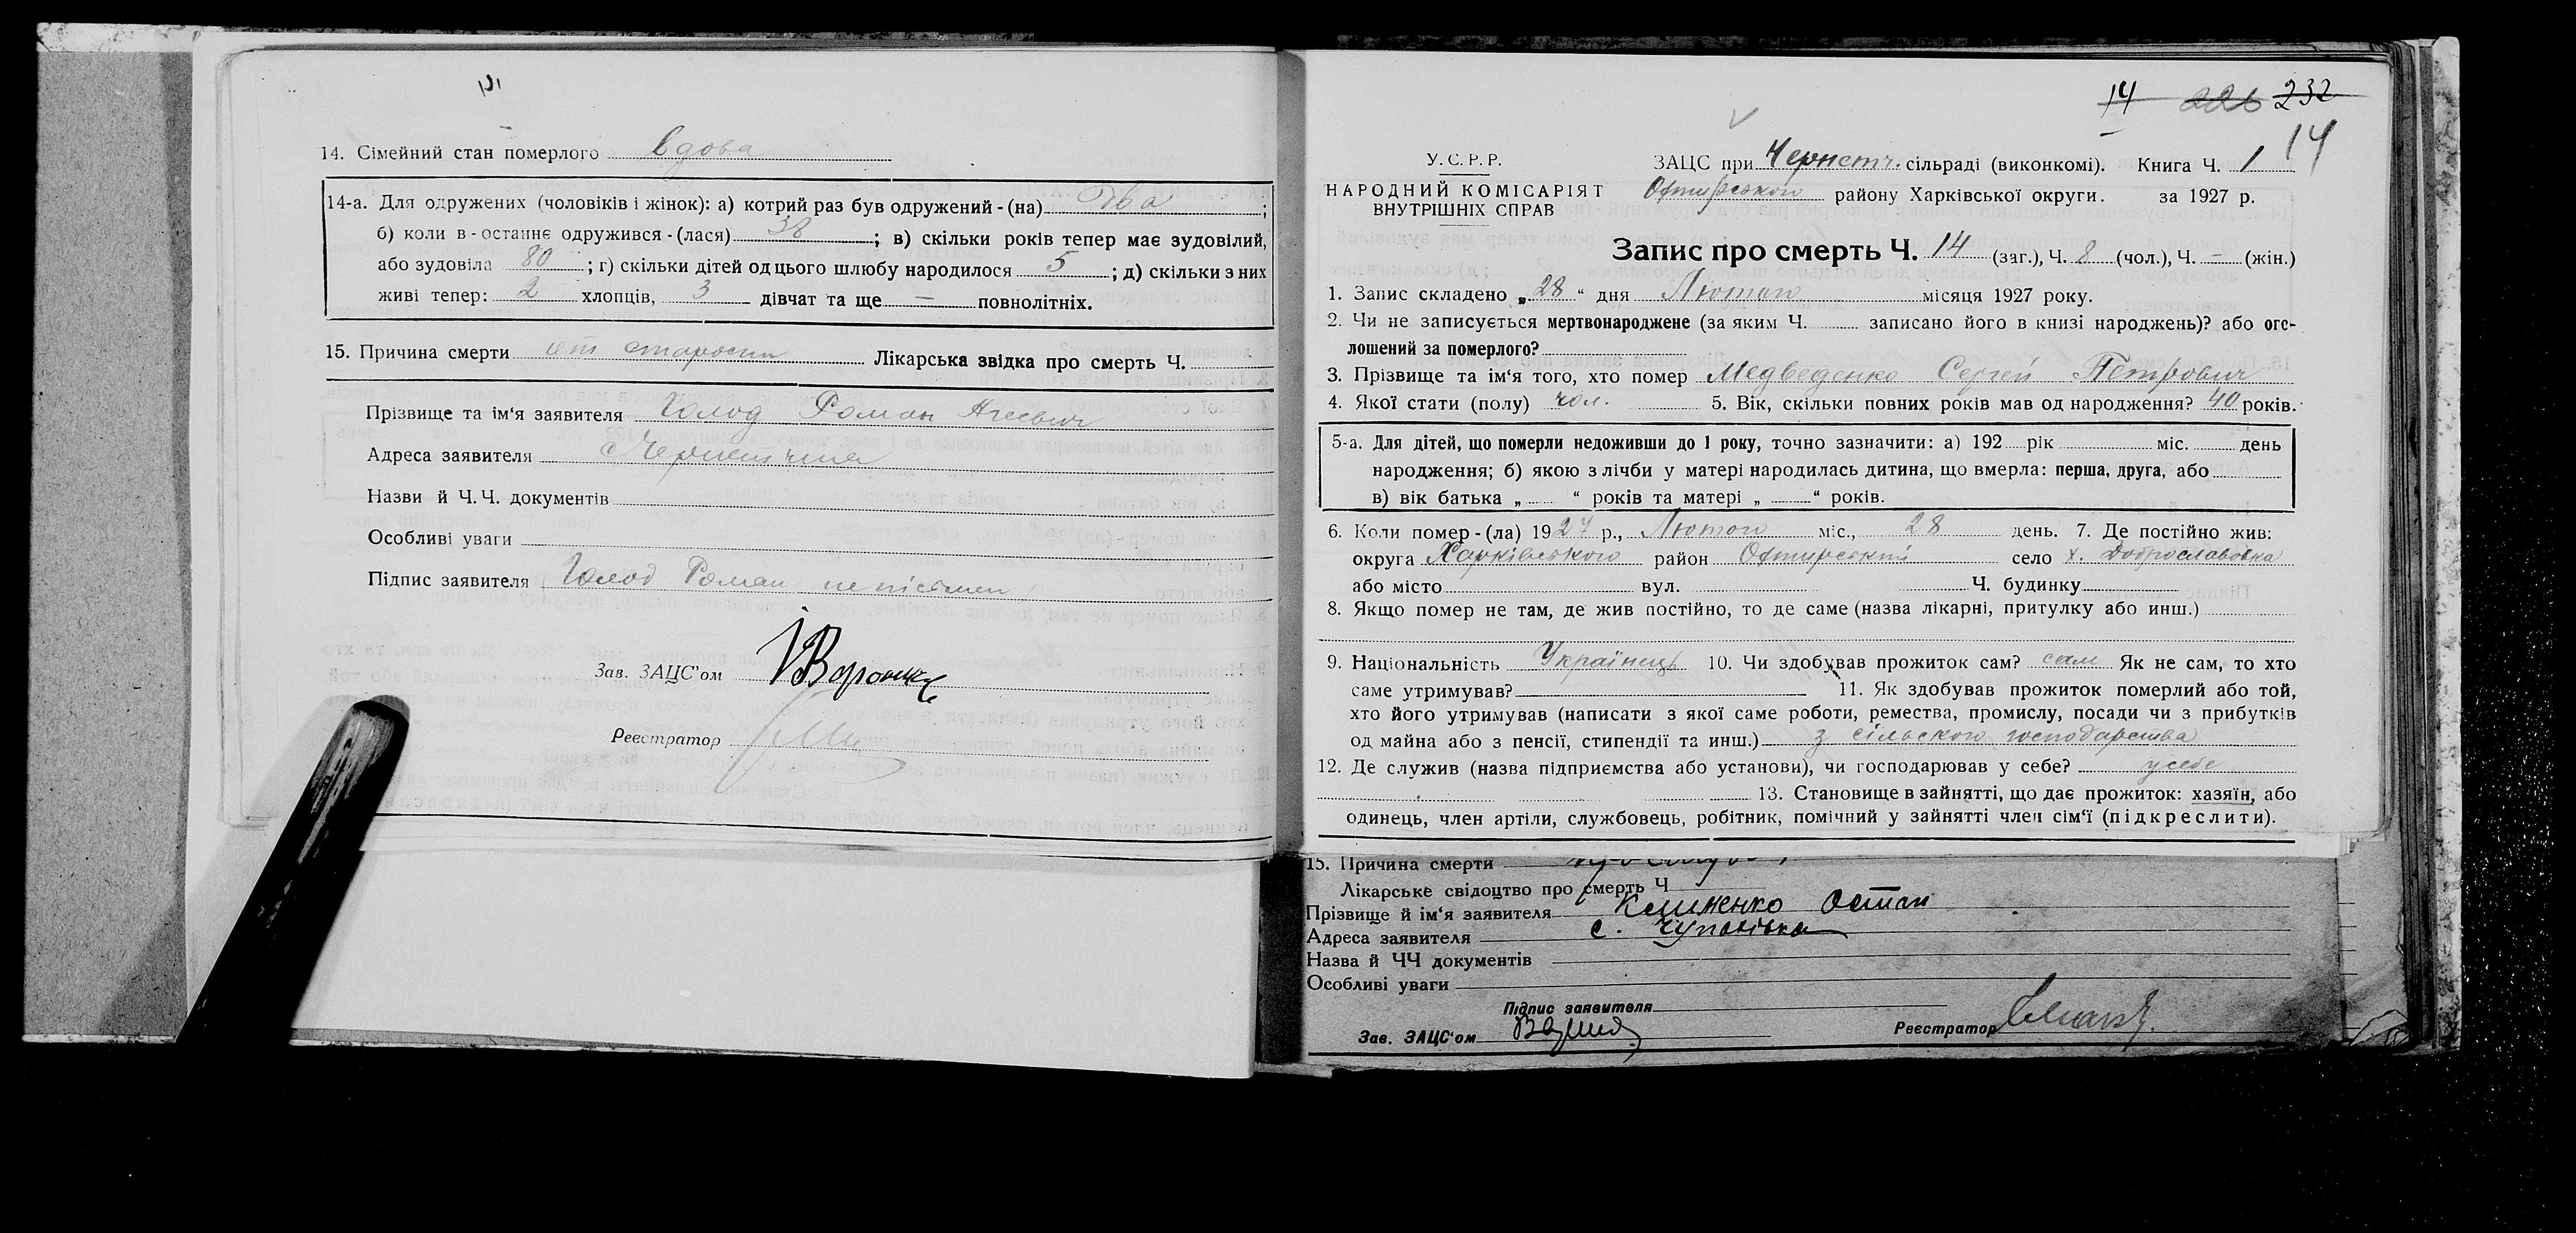 14. Сімейний стан померлого вдова
14-а. Для одружених (чоловіків і жінок): а) котрий раз був одружений - (на) два ;
б) коли в - останнє одружився - (лася) 38 ; в) скільки років тепер має зудовілий,
або зудовіла 80 ; г) скільки дітей од цього шлюбу народилося 5 ; д) скільки з них
живі тепер: 2 хлопців, 3 дівчат та ще — повнолітніх.
15. Причина смерти от старости Лікарська звідка про смерть Ч.
Прізвище та ім'я заявителя Голод Роман
Адреса заявителя с Чернетчина
Назви й Ч. Ч. документів
Особливі уваги
Підпис заявителя Голод Роман не písьмен
Зав. ЗАЦС'ом
Реєстратор
14 226 232
14
У. С. Р. Р.
НАРОДНИЙ КОМІСАРІЯТ
ВНУТРІШНІХ СПРАВ
ЗАЦС при Чернетч. сільраді (виконкомі). Книга Ч. 1
Охтирського району Харківської округи. за 1927 р.
Запис про смерть Ч. 14 (заг.), Ч. 8 (чол.), Ч. – (жін.)
1. Запис складено „28“ дня Лютого місяця 1927 року.
2. Чи не записується мертвонароджене (за яким Ч. записано його в книзі народжень)? або ого-
лошений за померлого?
3. Прізвище та ім'я того, хто помер Медведенко Сергей Петрович
4. Якої стати (полу) чол. 5. Вік, скільки повних років мав од народження? 40 років.
5-а. Для дітей, що померли недоживши до 1 року, точно зазначити: а) 192 рік міс. день
народження; б) якою з лічби у матері народилась дитина, що вмерла: перша, друга, або
в) вік батька „ “ років та матері „ “ років.
6. Коли помер - (ла) 1927 р., Лютого міс., 28 день. 7. Де постійно жив:
округа Харківського район Охтирський село х. Доброславовка
або місто вул. Ч. будинку
8. Якщо помер не там, де жив постійно, то де саме (назва лікарні, притулку або инш.)
9. Національність Українець 10. Чи здобував прожиток сам? сам Як не сам, то хто
саме утримував? 11. Як здобував прожиток померлий або той,
хто його утримував (написати з якої саме роботи, ремества, промислу, посади чи з прибутків
од майна або з пенсії, стипендії та инш.) з сільського господарства
12. Де служив (назва підприємства або установи), чи господарював у себе? у себе
13. Становище в зайнятті, що дає прожиток: хазяїн, або
одинець, член артіли, службовець, робітник, помічний у зайнятті член сім'ї (підкреслити).
15. Причина смерти
Лікарське свідоцтво про смерть Ч
Прізвище й ім'я заявителя Клименко Остап
Адреса заявителя с. Чупахівка
Назва й ЧЧ документів
Особливі уваги
Підпис заявителя
Зав. ЗАЦС'ом Реєстратор